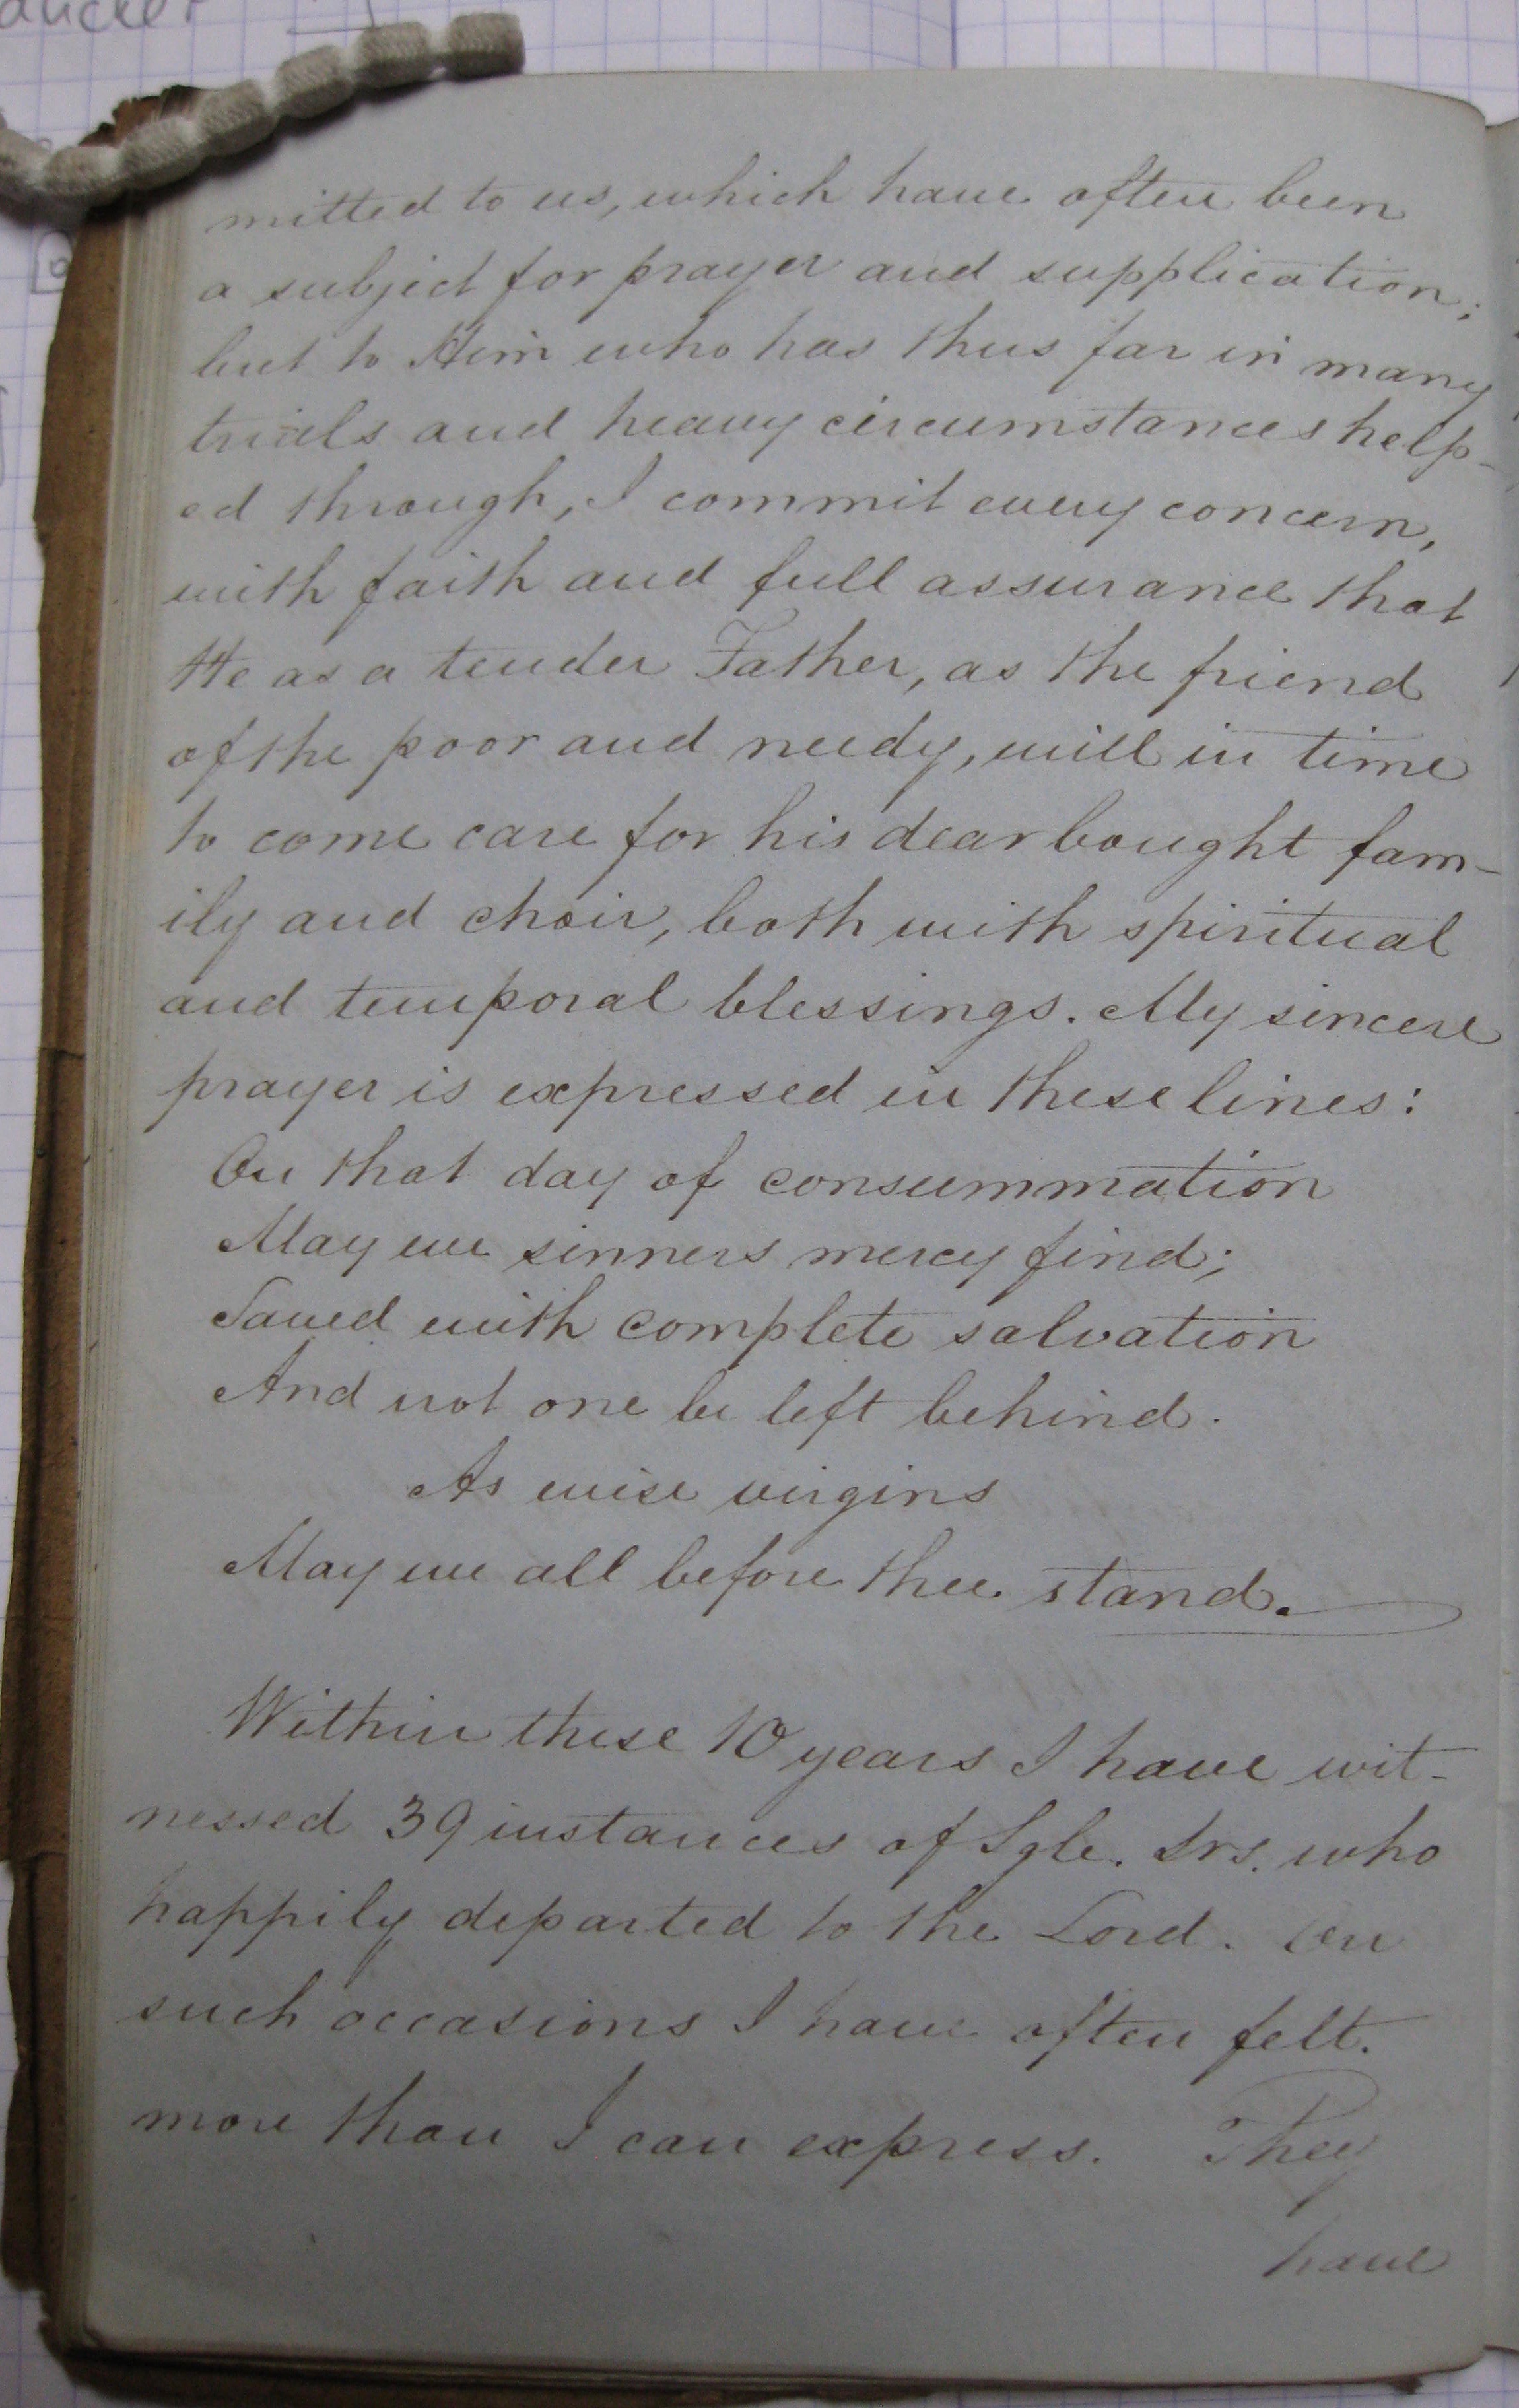 mitted to us, which have often been
a subject for prayer and supplication;
but to Him who has thus far in many
trials and heavy circumstances help-
ed through, I commit every concern,
with faith and full assurance that
He as a tender Father, as the friend
of the poor and needy, will in time
to come care for his dear bought fam-
ily and choir, both with spiritual
and temporal blessings. My sincere
prayer is expressed in these lines:
On that day of consummation
May we sinners mercy find;
Saved with complete salvation
And not one be left behind.
As wise virgins
May we all before thee stand.
Within these 10 years I have wit-
nessed 39 instances of Sgle. Srs. who
happily departed to the Lord. On
such occasions I have often felt.
more than I can express. They
have